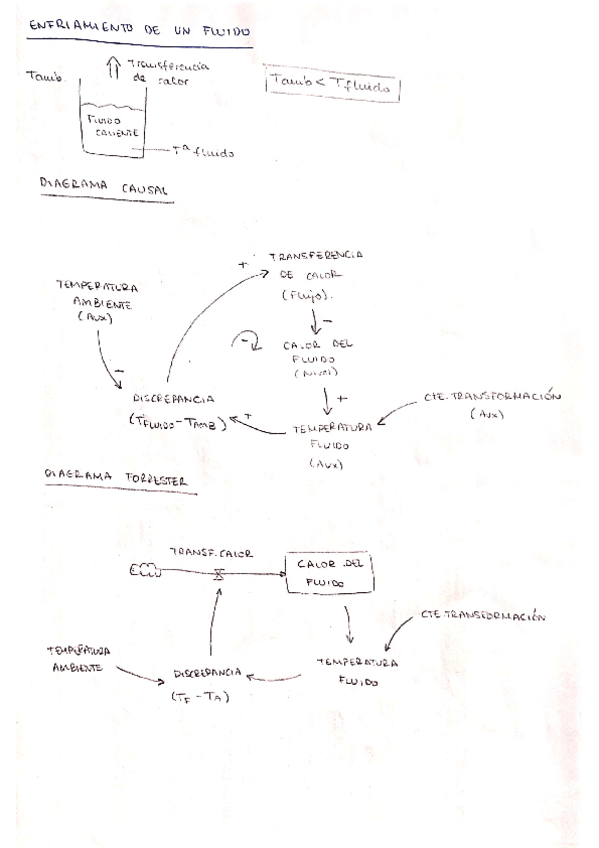 ENFRIAMIENTO DE UN FLUIDO
Tamb.
Transferencia
de calor
Tamb < Tfluido
FLUIDO
CALIENTE
Tª fluido
DIAGRAMA CAUSAL
TRANSFERENCIA
DE CALOR
(Flujo).
+
TEMPERATURA
AMBIENTE
(Aux)
-
-
CALOR DEL
FLUIDO
(Nivel)
-
+
DISCREPANCIA
(TFLUIDO-TAMB)
+
TEMPERATURA
FLUIDO
(Aux)
CTE. TRANSFORMACIÓN
(Aux)
DIAGRAMA FORRESTER
TRANSF. CALOR
CALOR DEL
FLUIDO
CTE. TRANSFORMACIÓN
TEMPERATURA
AMBIENTE
DISCREPANCIA
(TF - TA)
TEMPERATURA
FLUIDO